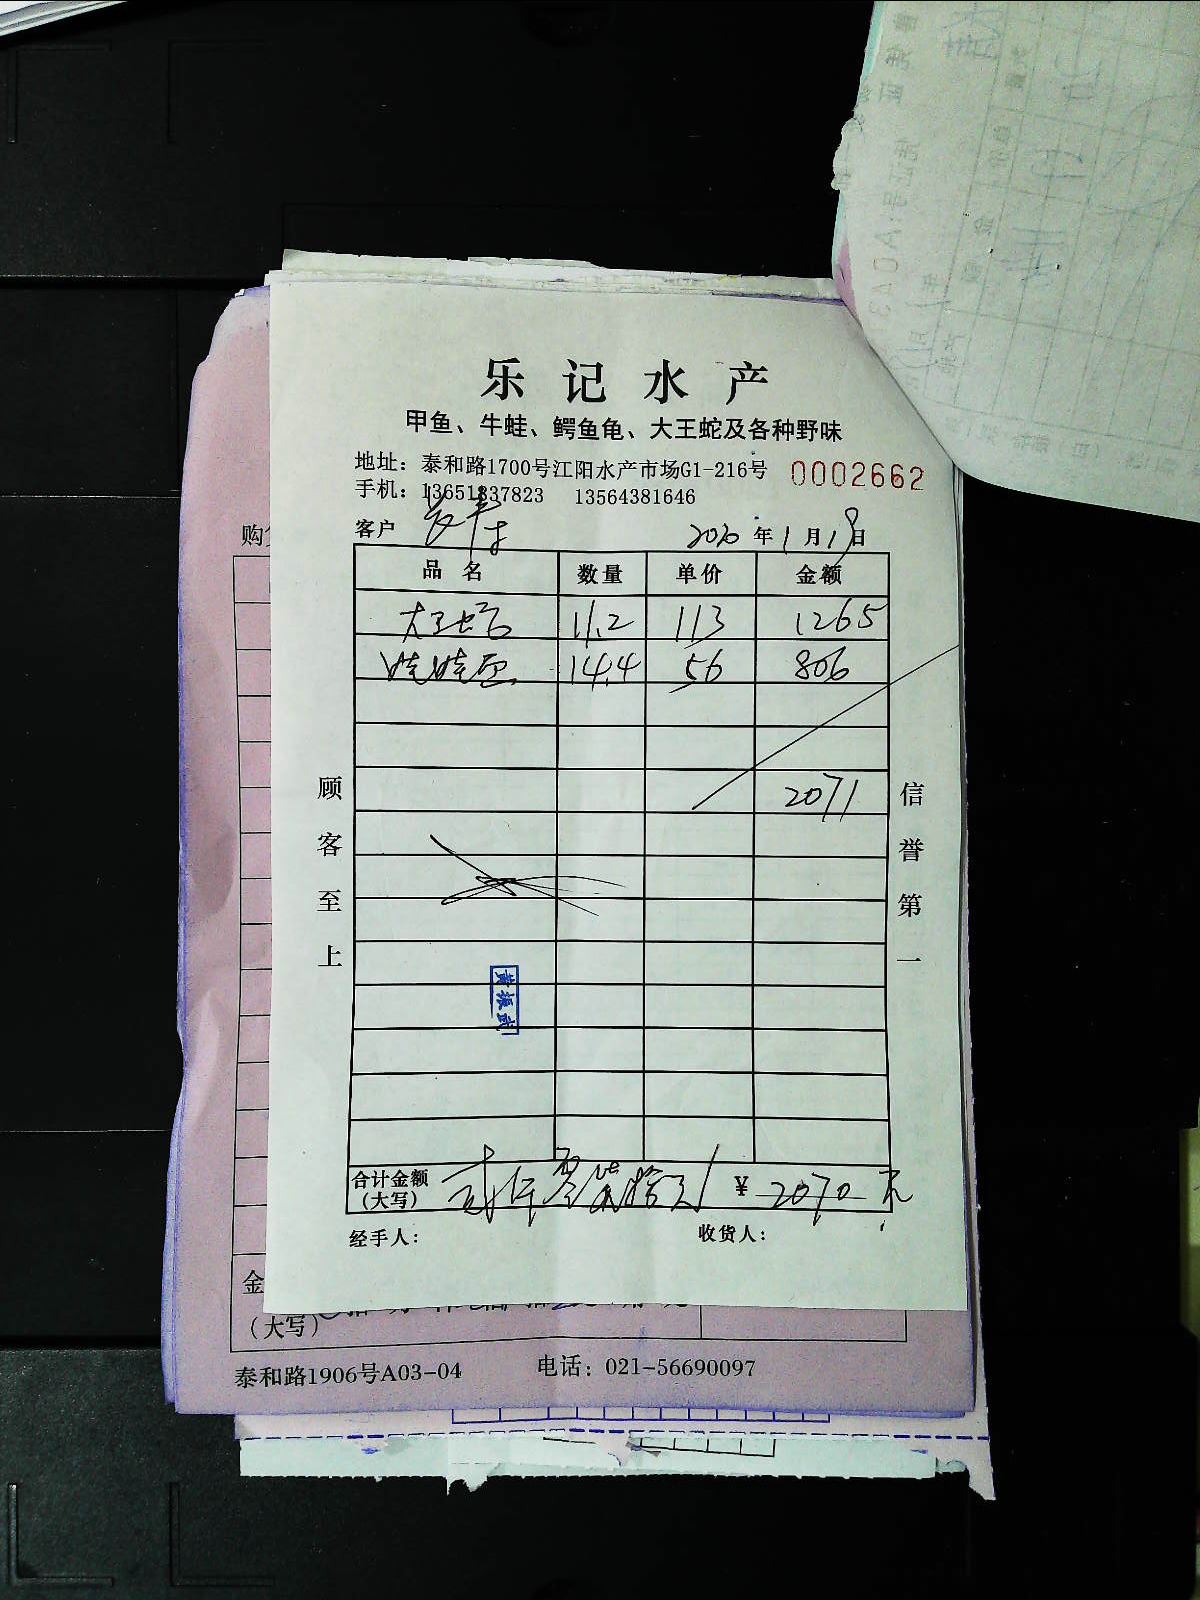 乐记水产
甲鱼、牛蛙、鳄鱼龟、大王蛇及各种野味
地址：泰和路1700号江阳水产市场G1-216号 0002662
手机：13651837823 13564381646
客户 2020年1月19日
品名 数量 单价 金额
大王蛇 11.2 113 1265
娃娃鱼 14.4 56 806
2071
顾客至上
信誉第一
黄振武
合计金额 贰仟零柒拾元 ¥ 2070元
(大写)
经手人： 收货人：
购
金
(大写)
泰和路1906号A03-04 电话：021-56690097